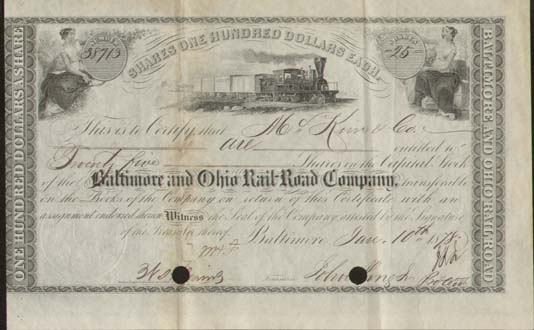 NUMBER
35713
SHARES
25
SHARES ONE HUNDRED DOLLARS EACH.
This is to Certify that McKim & Co.
are entitled to
Twenty five Shares in the Capital Stock
of the Baltimore and Ohio Rail-Road Company, transferable
on the Books of the Company on return of this Certificate with an
assignment endorsed thereon Witness the Seal of the Company attested by the Signature
of the Treasurer thereof.
Baltimore Jan. 10th 187
ONE HUNDRED DOLLARS A SHARE
BALTIMORE AND OHIO RAILROAD